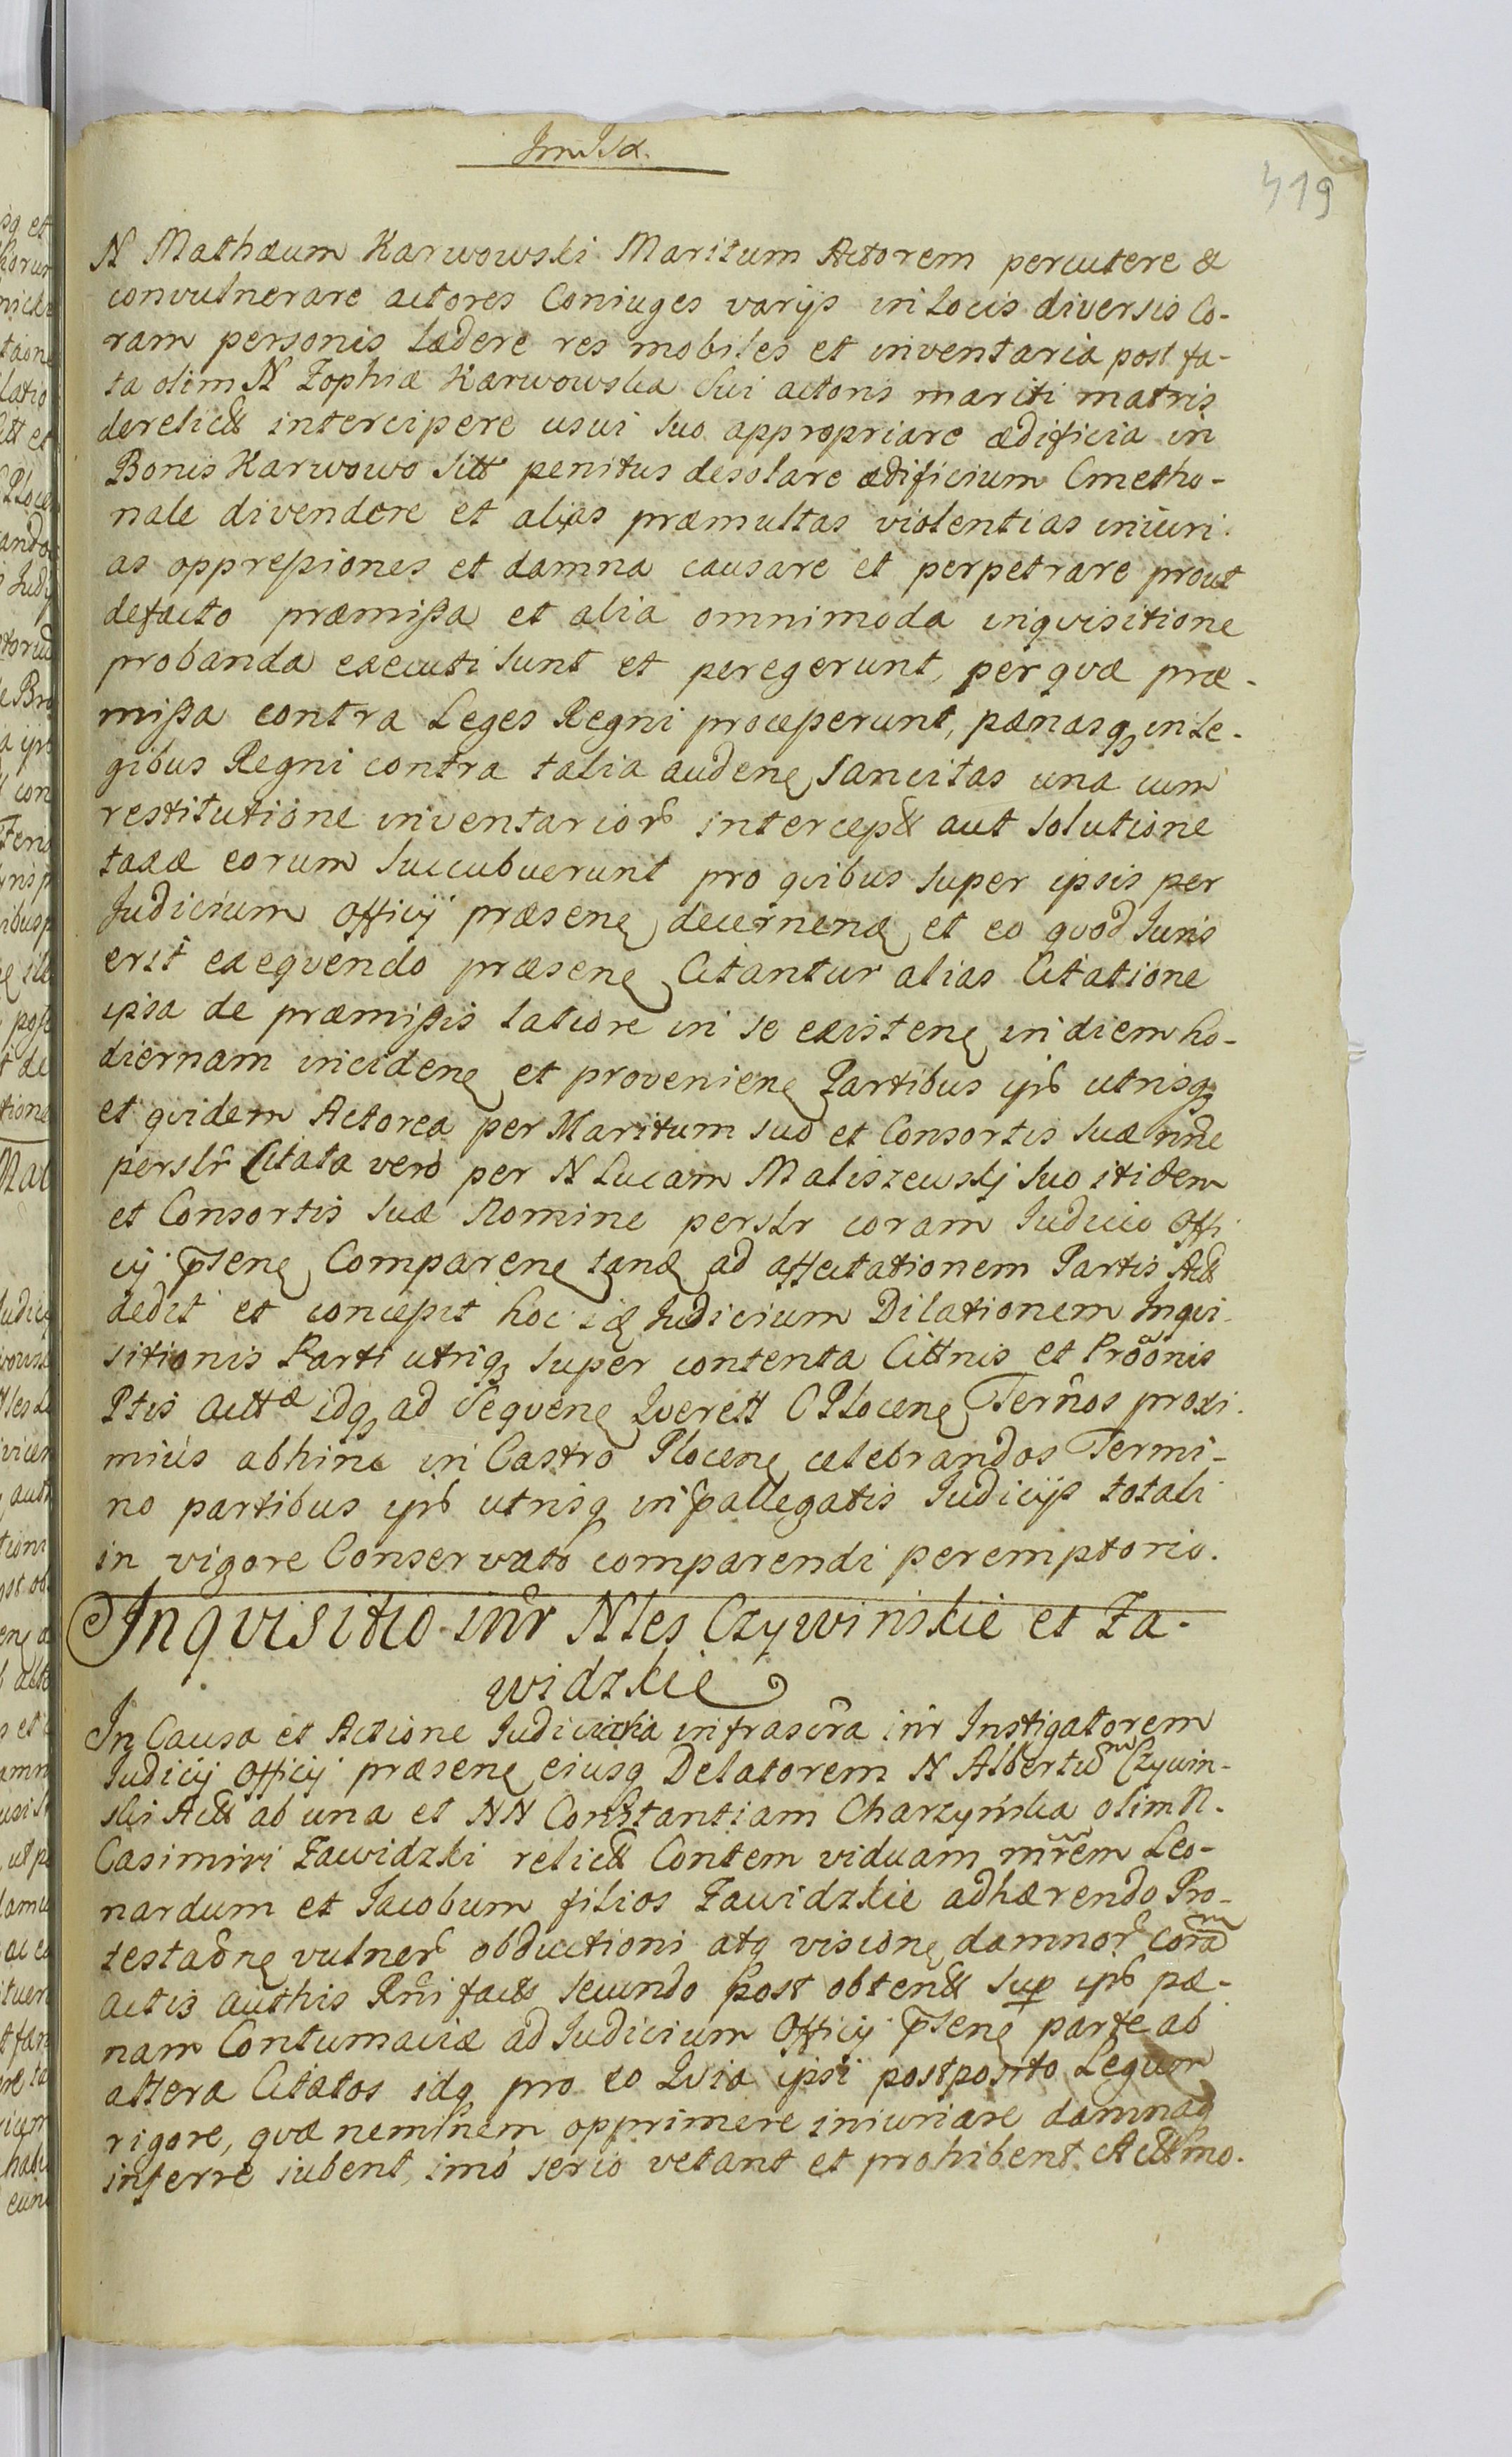 419
N Mathæum Karwowski Maritum Actorem percutere &
convulnerare actores Coniuges varijs in Locis diversis Co-
ram personis Lædere res mobiles et inventaria post fa-
ta olim N Zophiæ Karwowska sui actoris mariti matris
derelict intercipere usui suo appropriare ædificia in
Bonis Karwowo sitt penitus desolare ædificium Cmetho-
nale divendere et alias præmultas violentias iniuri-
as oppreßiones et damna causare et perpetrare prout
defacto præmißa et alia omnimoda inqvisitione
probanda executi sunt et peregerunt, per qvæ præ-
mißa contra Leges Regni proceßerunt, pænasq in Le-
gibus Regni contra talia auden sancitas una cum
restitutione inventarior intercept aut solutione
taxæ eorum succubuerunt pro qvibus super ipsis per
Judicium Officij præsen decernen et eo qvod Juris
erit exeqvendo præsen Citantur alias Citatione
ipsa de præmißis latiore in se existen in diem ho-
diernam inciden et provenien Partibus ipb utrisq
et qvidem Actorea per Maritum suo et Consortis suæ nne
perslr Citata vero per N Lucam Maliszewskj suo itidem
et Consortis suæ Nomine perslr coram Judicio Offi
cij psen Comparen tan ad affectationem Partis Act
dedit et conceßit hoc id Judicium Dilationem Inqvi-
sitionis Parti utriq super contenta Cittnis et Prõõnis
Ptis act idq ad Seqven Qverell C Plocen Terños proxi-
mius abhinc in Castro Plocen celebrandos Termi-
no partibus ipb utrisq in pallegatis Judicijs totali
in vigore Conservato comparendi peremptorio.
Inqvisitio inr Nles Czywinskie et Za-
widzkie
In Causa et Actione Judiciaria infrascra inr Instigatorem
Judicij Officij præsen eiusq Delatorem N Albertum Czywin-
ski Act ab una et NN Constantiam Charzyńska olim N.
Casimiri Zawidzki relict Contem viduam mrem Leo-
nardum et Jacobum filios Zawidzkie adhærendo Pro-
testaõne vulner obductioni atq vision damnor coram
actis authis Rni fact secundo post obtent sup ipb pæ-
nam Contumaciæ ad Judicium Officij psen parte ab
altera Citatos idq pro eo Qvia ipsi postposito Legum
rigore, qvæ neminem opprimere iniuriare damnaq
inferre iubent, imo serio vetant et prohibent Act mo-